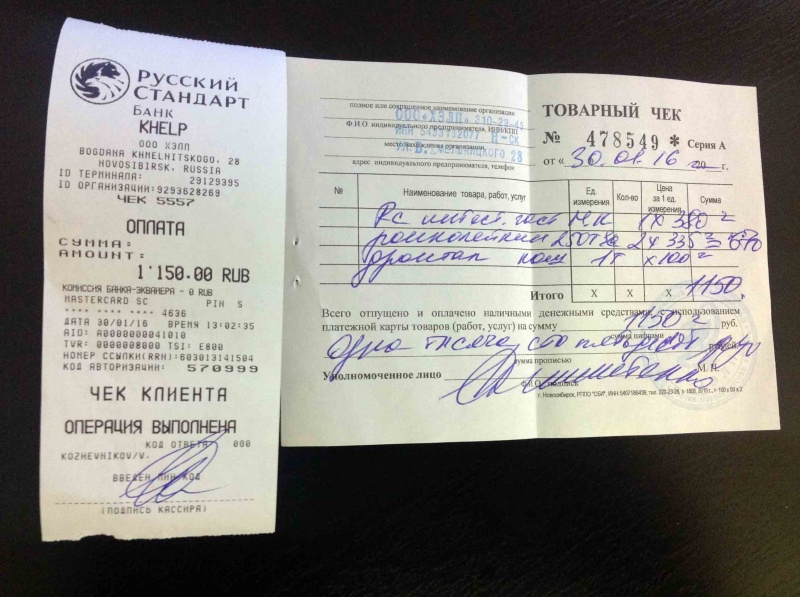 РУССКИЙ
СТАНДАРТ
БАНК
KHELP
ООО ХЭЛП
BOGDANA KHMELNITSKOGO, 28
NOVOSIBIRSK, RUSSIA
ID ТЕРМИНАЛА: 29129395
ID ОРГАНИЗАЦИИ:9293628269
ЧЕК 5557
ОПЛАТА
СУММА:
AMOUNT:
1'150.00 RUB
КОМИССИЯ БАНКА-ЭКВАЙЕРА - 0 RUB
MASTERCARD SC PIH S
**** **** **** 4636
ДАТА 30/01/16 ВРЕМЯ 13:02:35
AID: A0000000041010
TVR: 0000008000 TSI: E800
НОМЕР ССЫЛКИ(RRN):603013141504
КОД АВТОРИЗАЦИИ: 570999
ЧЕК КЛИЕНТА
ОПЕРАЦИЯ ВЫПОЛНЕНА
КОД ОТВЕТА: 000
KOZHEVNIKOV/V.
ВВЕДЕН ПИН-КОД
(ПОДПИСЬ КАССИРА)
полное или сокращенное наименование организации
ООО «ХЭЛП» 310-23-45
Ф И О индивидуального предпринимателя, ИНН/КПП
место нахождения организации,
адрес индивидуального предпринимателя, телефон
ТОВАРНЫЙ ЧЕК
№ 478549 * Серия А
от « 30.01.16 20 г.
№ Наименование товара, работ, услуг Ед. измерения Кол-во Цена за 1 ед. измерения Сумма
1 х 380=
250 2х 335= 670
1т х100=
Итого Х Х Х 1150
Всего отпущено и оплачено наличными денежными средствами, с использованием
платежной карты товаров (работ, услуг) на сумму 1150= руб.
сумма цифрами
Одна тысяча сто пятьдесят
сумма прописью
Уполномоченное лицо М. П.
Ф.И.О., подпись